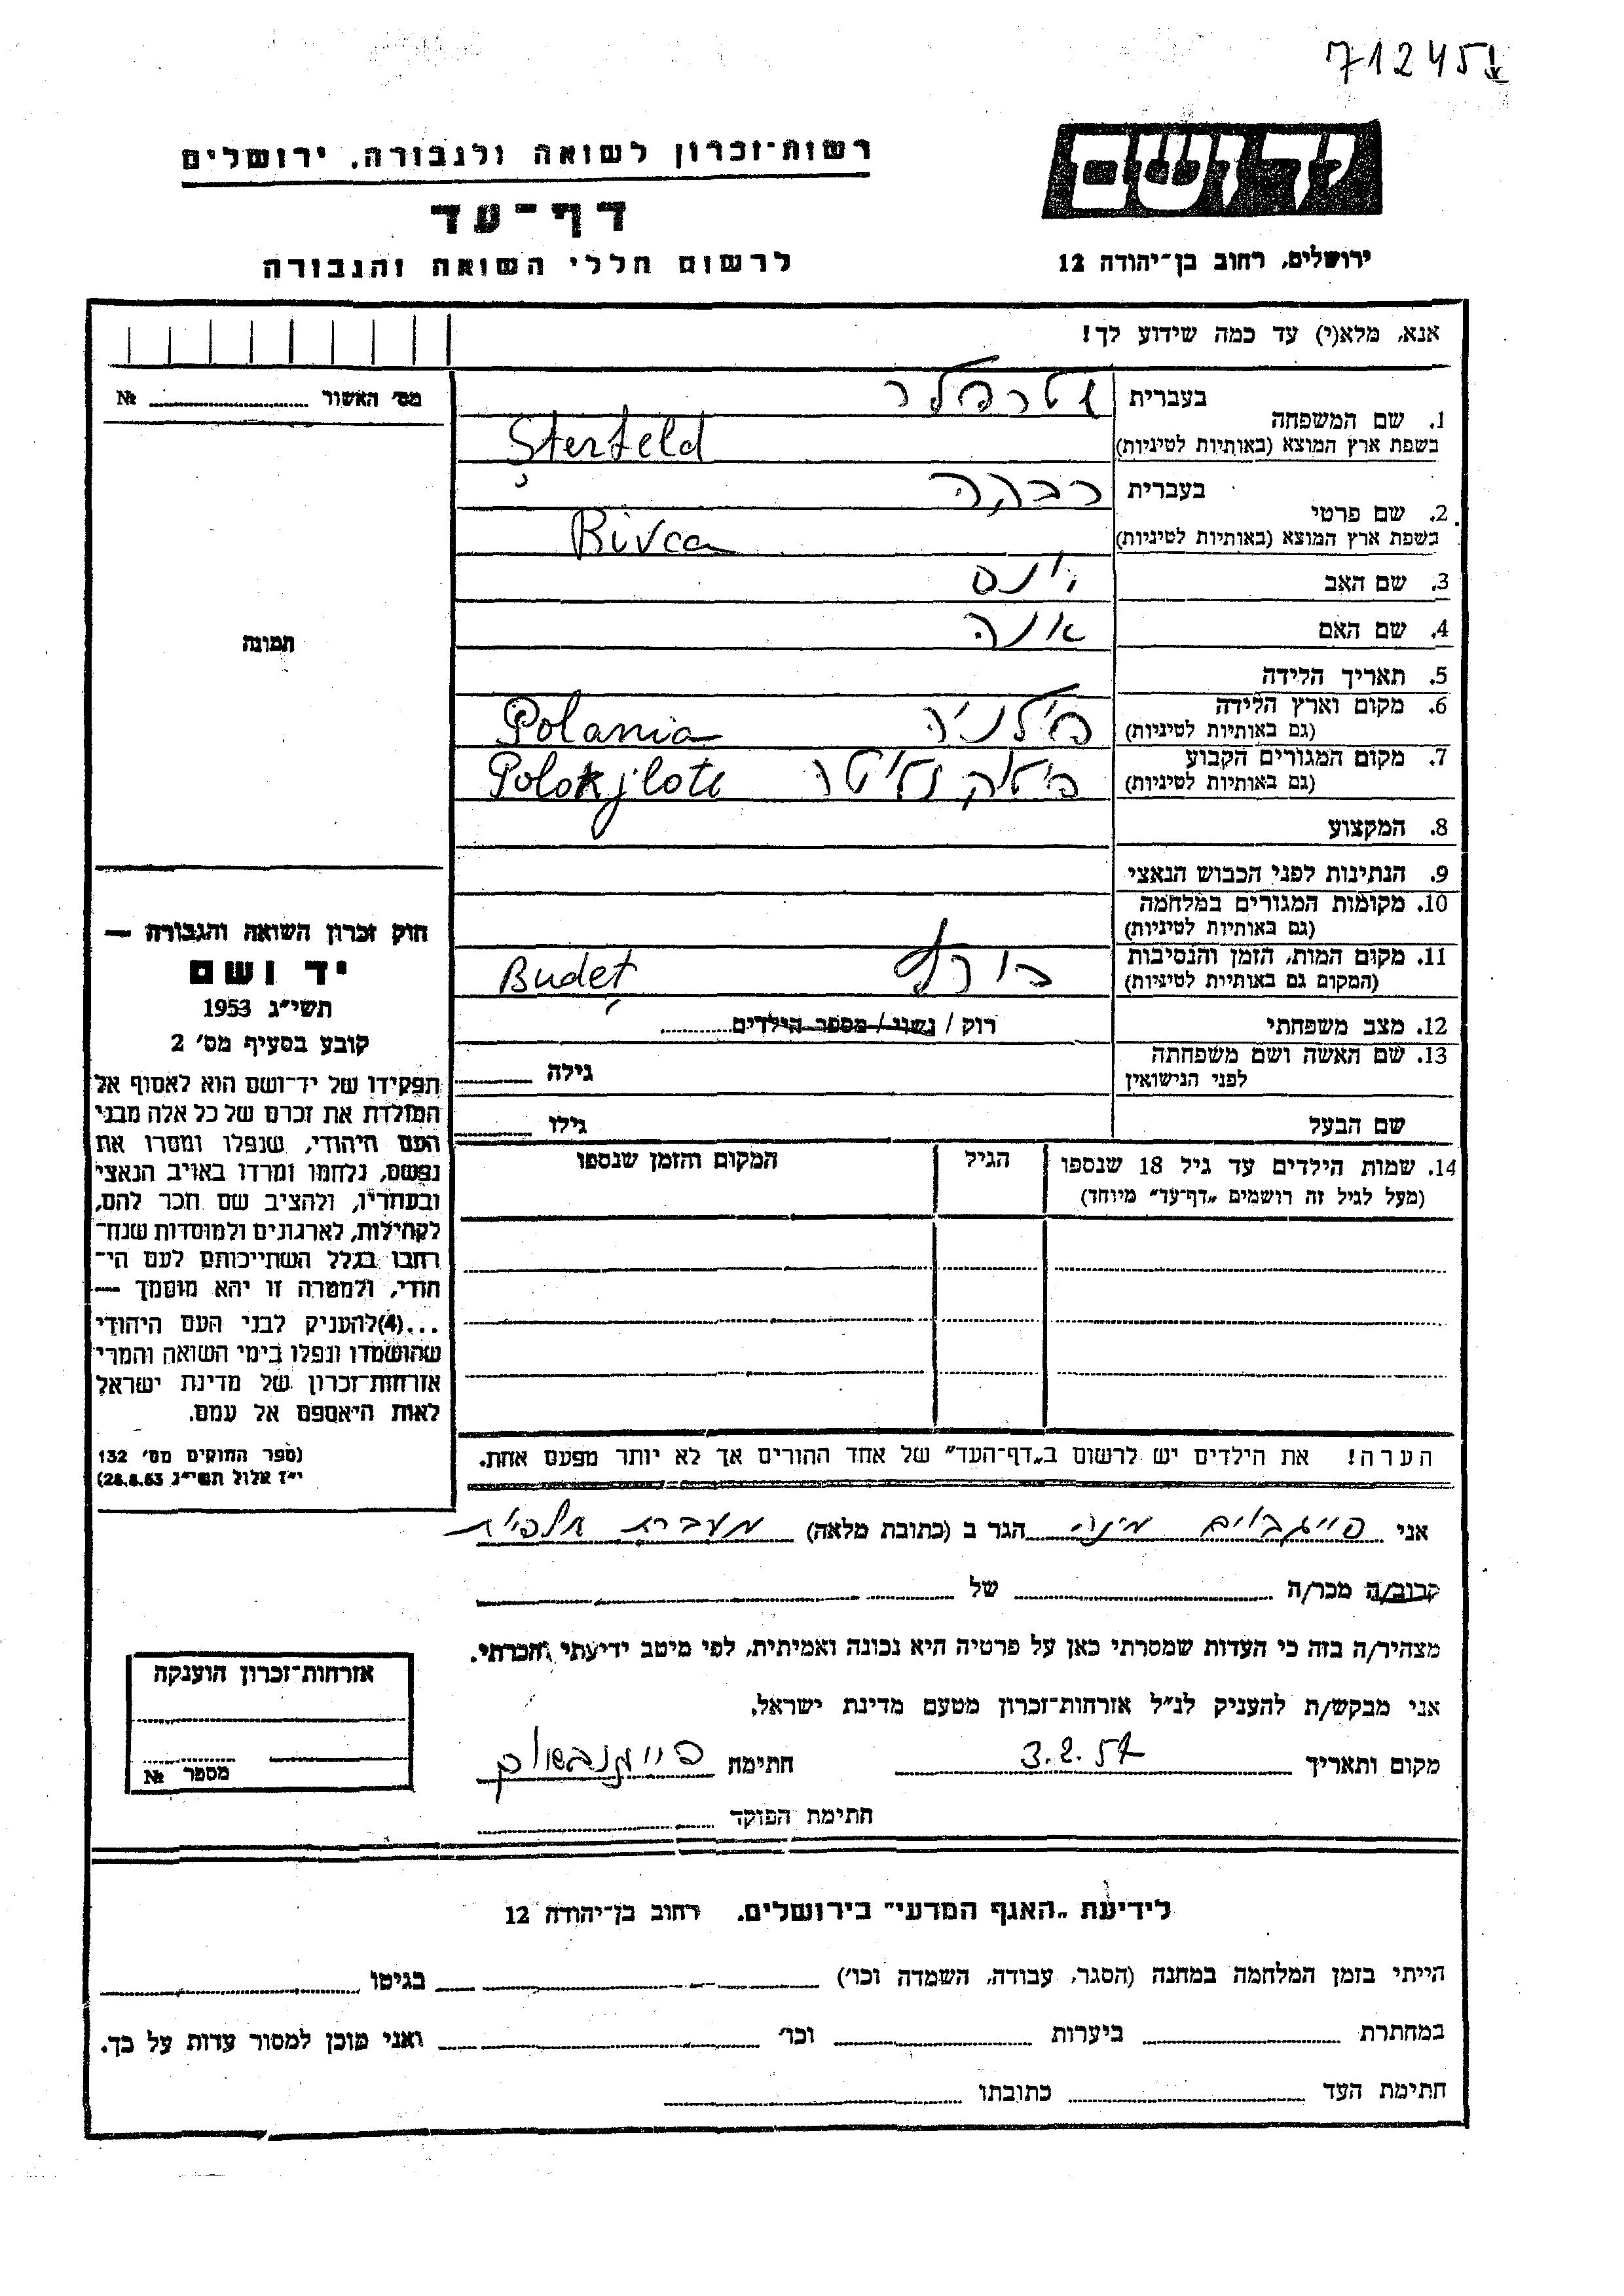 712451
יד ושם
רשות־זכרון לשואה ולגבורה, ירושלים
דף־עד
לרשום חללי השואה והגבורה
ירושלים, רחוב בן־יהודה 12
אנא, מלא(י) עד כמה שידוע לך!
מס׳ האשור № 
1. שם המשפחה
בעברית
בשפת ארץ המוצא (באותיות לטיניות) Şterfeld
2. שם פרטי
בעברית רבקה
בשפת ארץ המוצא (באותיות לטיניות) Rivca
3. שם האב
4. שם האם
תמונה
5. תאריך הלידה
6. מקום וארץ הלידה Polania
(גם באותיות לטיניות)
7. מקום המגורים הקבוע Polokjlote
(גם באותיות לטיניות)
8. המקצוע
9. הנתינות לפני הכבוש הנאצי
10. מקומות המגורים במלחמה
(גם באותיות לטיניות)
11. מקום המות, הזמן והנסיבות Budeţ
(המקום גם באותיות לטיניות)
12. מצב משפחתי רוק / נשוי / מספר הילדים
13. שם האשה ושם משפחתה גילה
לפני הנישואין
שם הבעל גילו
14. שמות הילדים עד גיל 18 שנספו הגיל המקום והזמן שנספו
(מעל לגיל זה רושמים „דף־עד״ מיוחד)
חוק זכרון השואה והגבורה —
יד ושם
תשי״ג 1953
קובע בסעיף מס׳ 2
תפקידו של יד־ושם הוא לאסוף אל
המולדת את זכרם של כל אלה מבני
העם היהודי, שנפלו ומסרו את
נפשם, נלחמו ומרדו באויב הנאצי
ובעוזריו, ולהציב שם וזכר להם,
לקהילות, לארגונים ולמוסדות שנח־
רבו בגלל השתייכותם לעם הי־
הודי, ולמטרה זו יהא מוסמך —
...(4)להעניק לבני העם היהודי
שהושמדו ונפלו בימי השואה והמרי
אזרחות־זכרון של מדינת ישראל
לאות היאספם אל עמם.
(ספר החוקים מס׳ 132
י״ז אלול תשי״ג 28.8.53)
הערה! את הילדים יש לרשום ב„דף־העד״ של אחד ההורים אך לא יותר מפעם אחת.
אני הגר ב (כתובת מלאה) מעברת
קרוב/ה מכר/ה של
מצהיר/ה בזה כי העדות שמסרתי כאן על פרטיה היא נכונה ואמיתית, לפי מיטב ידיעתי והכרתי.
אני מבקש/ת להעניק לנ״ל אזרחות־זכרון מטעם מדינת ישראל.
מקום ותאריך 3.2.57 חתימה
חתימת הפוקד
אזרחות־זכרון הוענקה
מספר №
לידיעת „האגף המדעי״ בירושלים, רחוב בן־יהודה 12
הייתי בזמן המלחמה במחנה (הסגר, עבודה, השמדה וכו׳) בגיטו
במחתרת ביערות וכו׳ ואני מוכן למסור עדות על כך.
חתימת העד כתובתו